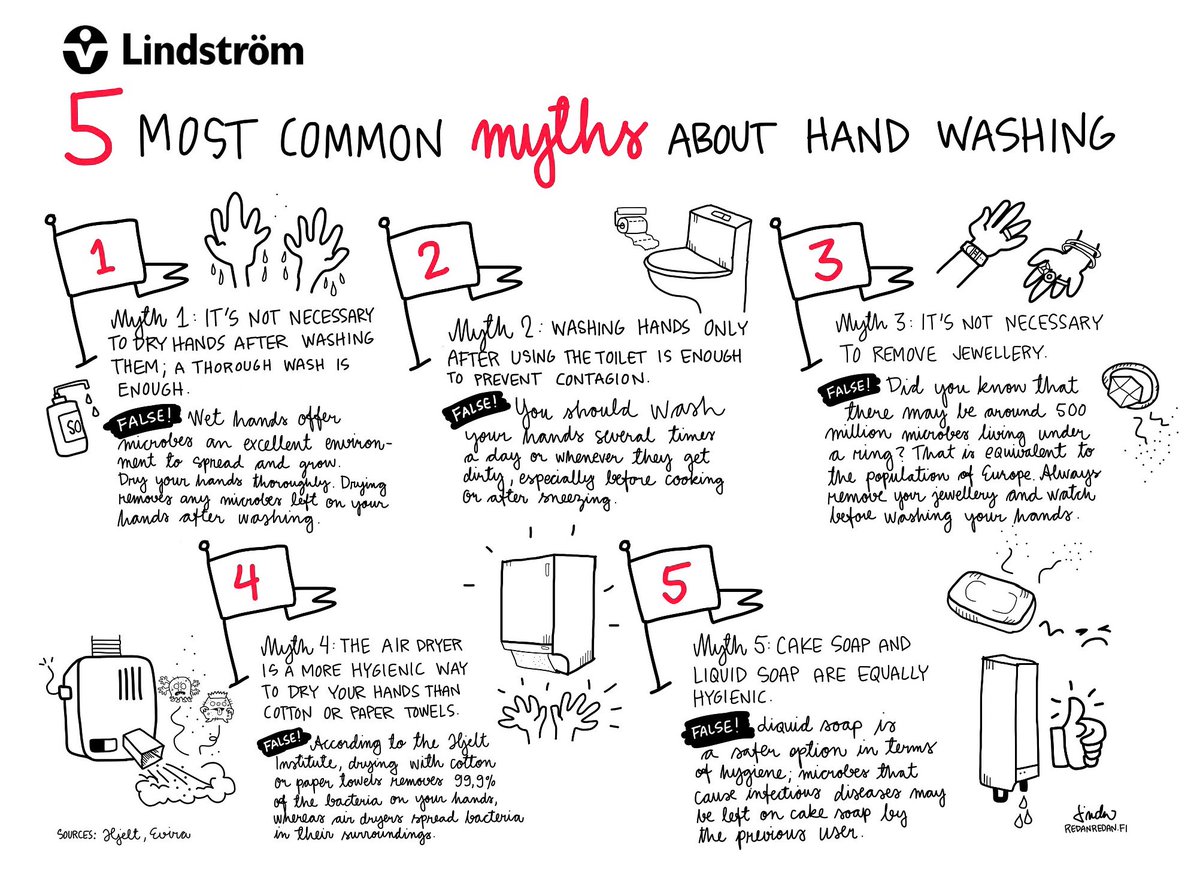 Lindström
5 MOST COMMON myths ABOUT HAND WASHING
1
Myth 1: IT'S NOT NECESSARY
TO DRY HANDS AFTER WASHING
THEM; A THOROUGH WASH IS
ENOUGH.
SO
FALSE! Wet hands offer
microbes an excellent environ-
ment to spread and grow.
Dry your hands thoroughly. Drying
removes any microbes left on your
hands after washing.
2
Myth 2: WASHING HANDS ONLY
AFTER USING THE TOILET IS ENOUGH
TO PREVENT CONTAGION.
FALSE! You should wash
your hands several times
a day or whenever they get
dirty, especially before cooking
or after sneezing.
3
Myth 3: IT'S NOT NECESSARY
TO REMOVE JEWELLERY.
FALSE! Did you know that
there may be around 500
million microbes living under
a ring? That is equivalent to
the population of Europe. Always
remove your jewellery and watch
before washing your hands.
4
Myth 4: THE AIR DRYER
IS A MORE HYGIENIC WAY
TO DRY YOUR HANDS THAN
COTTON OR PAPER TOWELS.
FALSE! According to the Hjelt
Institute, drying with cotton
or paper towels removes 99,9%
of the bacteria on your hands,
whereas air dryers spread bacteria
in their surroundings.
5
Myth 5: CAKE SOAP AND
LIQUID SOAP ARE EQUALLY
HYGIENIC.
FALSE! Liquid soap is
a safer option in terms
of hygiene; microbes that
cause infectious diseases may
be left on cake soap by
the previous user.
SOURCES: Hjelt, Evira
Linda
REDANREDAN.FI